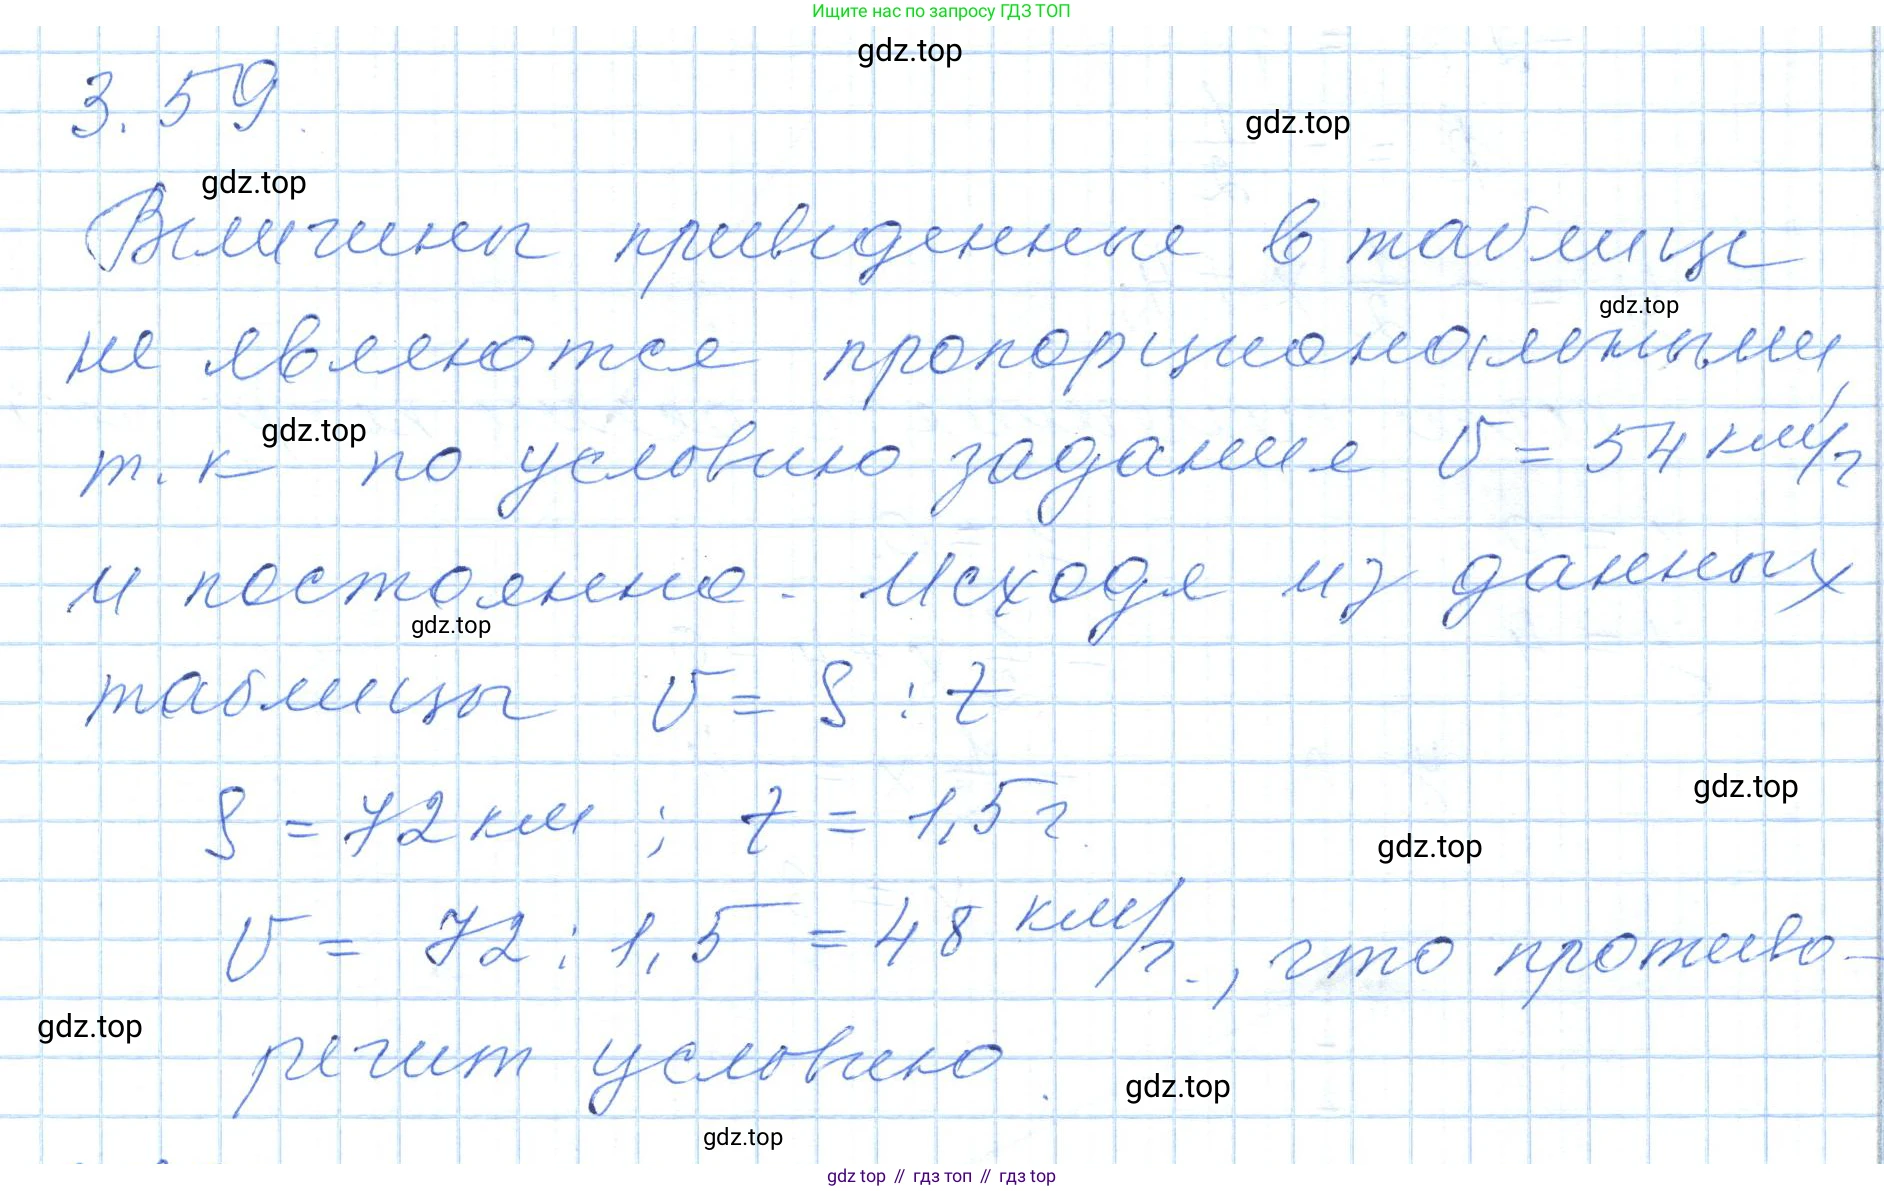 Ищите нас по запросу ГДЗ ТОП
gdz.top
3.59.
gdz.top
gdz.top
Величины приведенные в таблице
gdz.top
не являются пропорциональными,
gdz.top
т.к по условию задания V = 54 км/ч
и постоянна. Исходя из данных
gdz.top
таблицы V = S : t
gdz.top
S = 72 км ; t = 1,5 ч.
gdz.top
V = 72 : 1,5 = 48 км/ч., что противо-
gdz.top
речит условию.
gdz.top
gdz.top
gdz top // гдз топ // гдз top